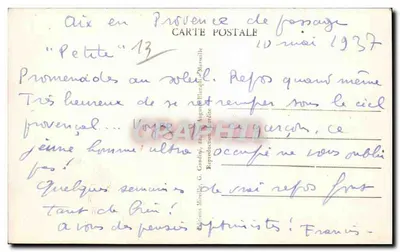 Aix en Provence de passage
CARTE POSTALE
10 mai 1937
"Petite" 13
Promenades au soleil. Repos quand même
Très heureux de se retremper sous le ciel
provençal... garçon, ce
jeune homme ultra occupé ne vous oublie
pas!
Quelques semaines de vrai repos font
tant de bien!
à vos pensées optimistes! Francis